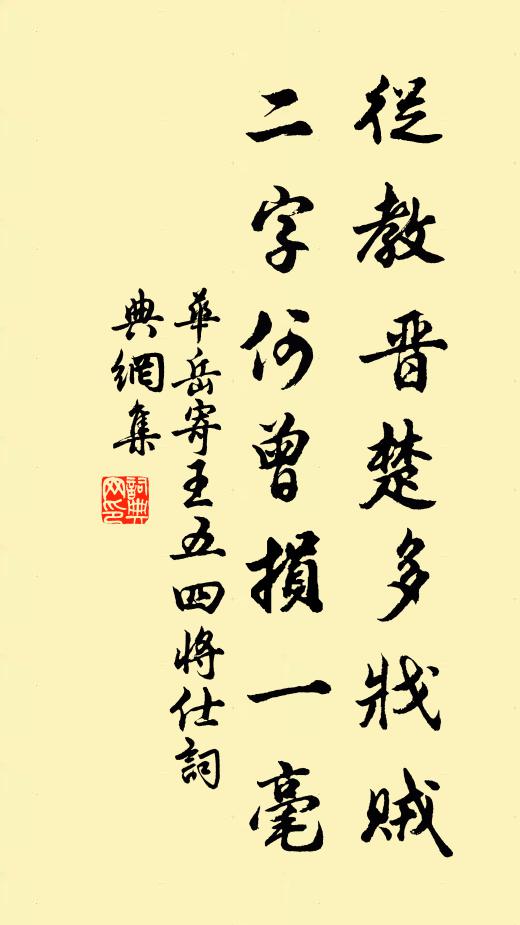 從教晋楚多戕賊
二字何曾損一毫
華岳寄王五四將仕詞
典網集
詞典网印